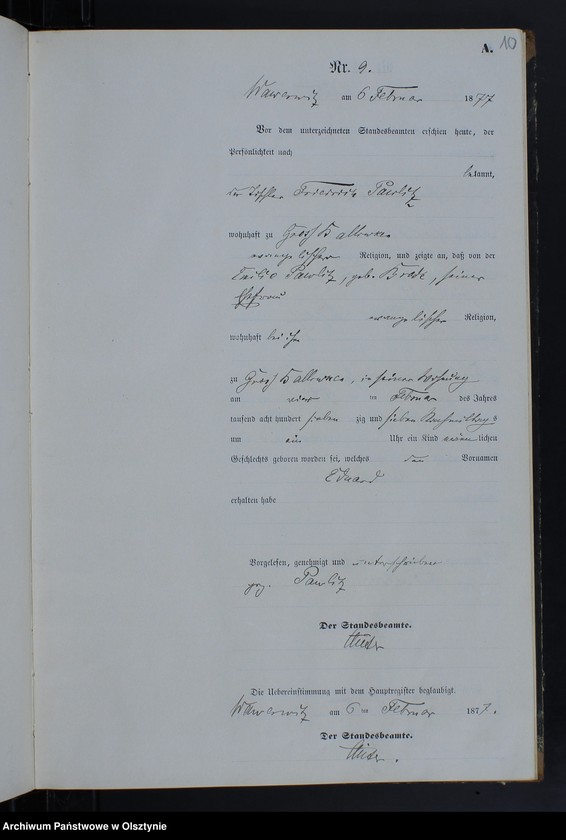 A. 10
Nr. 9.
Wawerwitz am 6 Februar 1877
Vor dem unterzeichneten Standesbeamten erschien heute, der
Persönlichkeit nach
bekannt,
der Tischler Friedrich Pawlitz
wohnhaft zu Groß
evangelischer Religion, und zeigte an, daß von der
Pawlitz, geb. seiner
Ehefrau
evangelischer Religion,
wohnhaft bei ihm
zu Groß in seiner Wohnung
am vier ten Februar des Jahres
tausend acht hundert sieben zig und sieben Nachmittags
um ein Uhr ein Kind männlichen
Geschlechts geboren worden sei, welches den Vornamen
Eduard
erhalten habe
Vorgelesen, genehmigt und unterschrieben
gez. Pawlitz
Der Standesbeamte.
Die Uebereinstimmung mit dem Hauptregister beglaubigt.
Wawerwitz am 6 ten Februar 1877.
Der Standesbeamte.
Archiwum Państwowe w Olsztynie